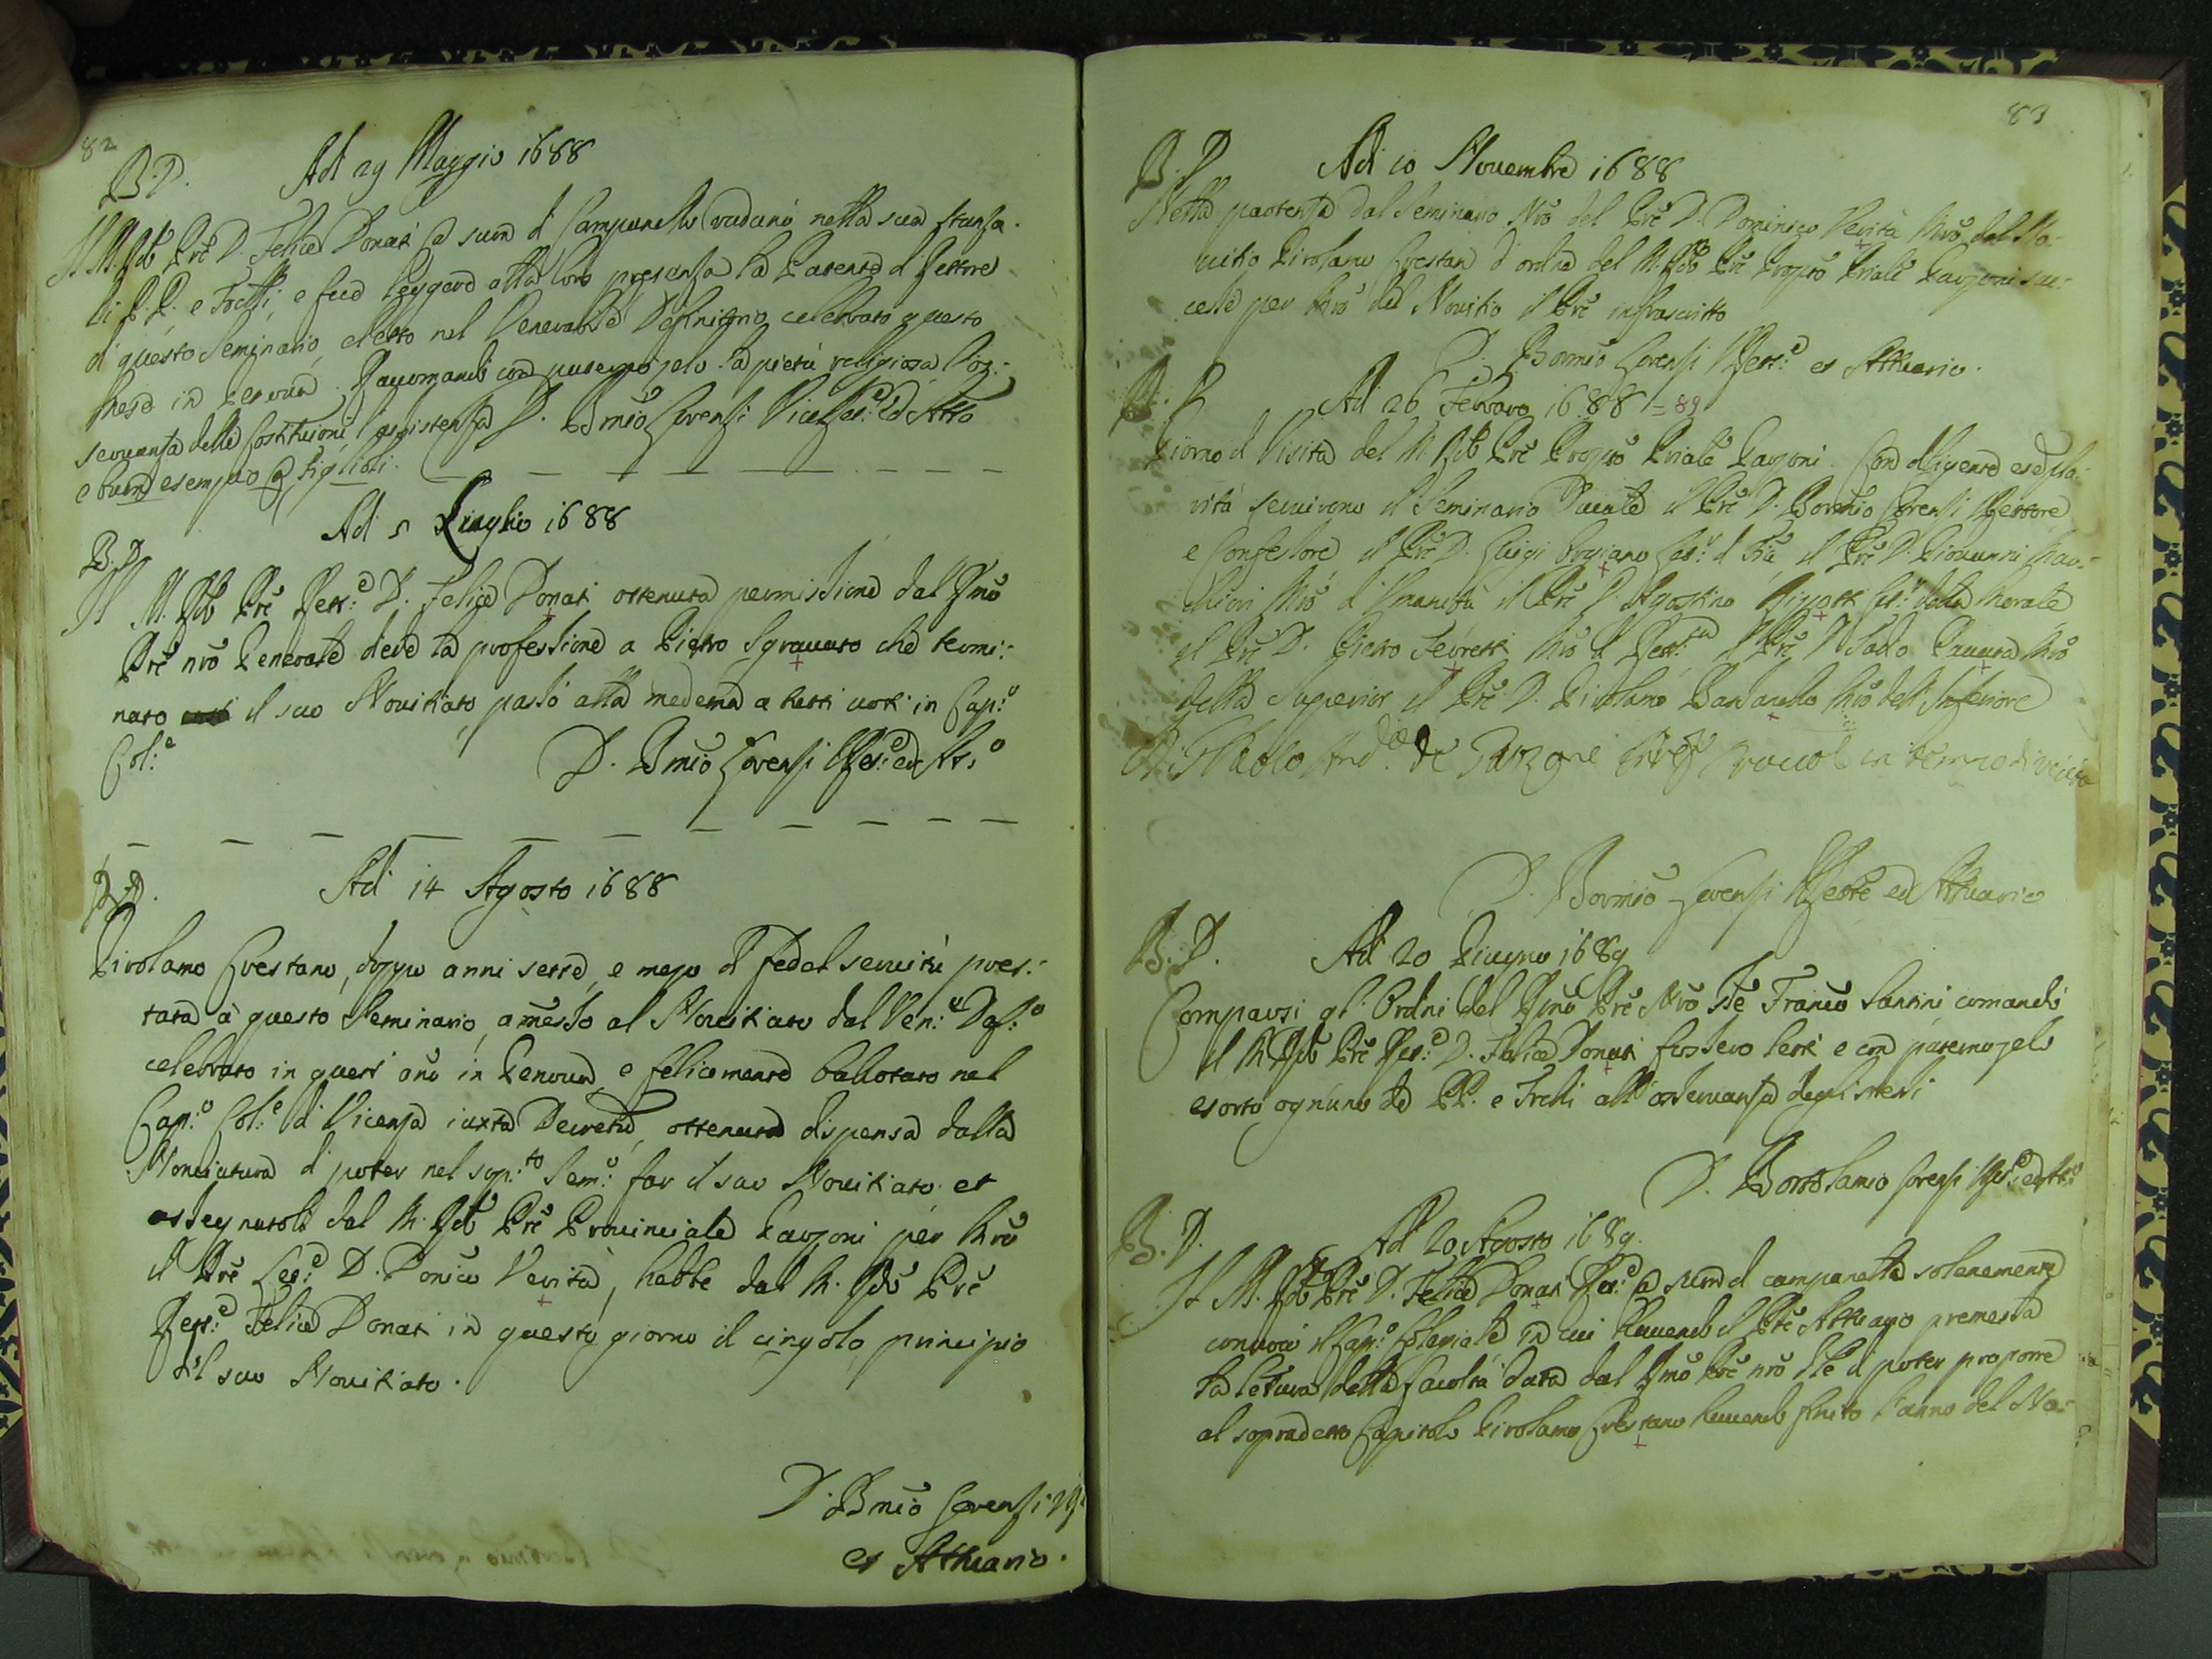 82
B. D. Adi 29 Maggio 1688
Il M. Rdo Pre D. Felice Donati a suon di Campanello radunò nella sua stanza
li P. P. e Fratelli, e fece leggere alla loro presenza la Patente di Rettore
di questo Seminario, eletto nel Venerabile Definitorio celebrato questo
mese in Genova. Raccomandò con paterno zelo la pietà religiosa l'os:
servanza delle Costitucioni l'assistenza D. Bmeo Corensi Vice Ret. ed Atto
e buon esempio a figlioli.
Adi 5 Luglio 1688
B. D.
Il M. Rdo Pre Rett:e D. Felice Donati ottenuta permissione dal Rmo
Pre nro Generale diede la professione a Pietro Sgravato che termi:
nato il suo Novitiato passò alla medema a tutti voti in Cap:o
Col:e
D. Bmeo Corensi VRet:e ed Att:o
B. D. Adi 14 Agosto 1688
Girolamo Crestano, doppo anni sette, e mezo di fedel servitù pres:
tata à questo Seminario, amesso al Novitiato dal Ven:e Def:o
celebrato in quest' ano in Genova, e felicemente ballotato nel
Cap:o Col:e di Vicenza iuxta Decretu, ottenuta dispensa dalla
Nonciatura di poter nel sop:to Sem:o far il suo Novitiato et
assegnatoli dal M. Rdo Pre Provinciale Garzoni per Mro
il Pre D. Donico Verità, hebbe dal M. Rdo Pre
Rett:e Felice Donati in questo giorno il cingolo, principio
del suo Novitiato.
D. Bmeo Corensi
et Attuario.
83
B. D. Adi 10 Novembre 1688
Nella partenza dal Seminario Nro del Pre D. Dominico Verità Mro del No:
vitio Girolamo Crestan d'ordine del M. Rdo Pre Propto Priale Garzoni suc:
cede per Mro del Novitio il Pre infrascritto
D. Bormeo Corensi VRett:e et Attuario.
B. D. Adi 26 Febraro 1688 = 89
Giorno di Visita del M. Rdo Pre Propto Priale Garzoni. Con diligente
servirono il Seminario Ducale il Pre D. Bormeo Corensi VRettore
e Confessore il Pre D. Luigi il Pre D. Giovanni
Mro d'Umanità il Pre D. Agostino della morale
il Pre D. Pietro Mro di il Pre D. Mro
della Superior il Pre D. Girolamo Mro dell'Inferiore
in tempo di visita
D. Bormeo Corensi VRettre ed Attuario
B. D. Adi 20 Giugno 1689
Comparsi gl'Ordini del Rmo Pre Nro Gle Franco Santini comandò
il M. Rdo Pre Ret:e D. Felice Donati fossero letti e con paterno zelo
esortò ognuno de PP. e Frelli all'osservanza degli stessi
D. Bortolameo Corensi VRet:e ed Att:o
B. D. Adi 20 Agosto 1689.
Il M. Rdo Pre D. Felice Donati Ret:e a suon di campanella solenemente
convocò il Cap:o Colegiale in cui havendo il Pre Attuario premessa
la letura della facoltà data dal Rmo Pre nro Gle di poter proporre
al sopradetto Capitolo Girolamo Crestano havendo finito l'anno del No: